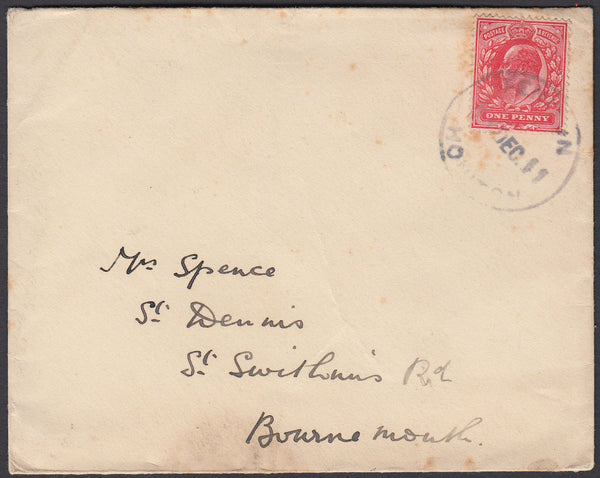 POSTAGE REVENUE
ONE PENNY
DEC. 11
Mrs Spence
St. Dennis
St. Swithuns Rd
Bournemouth.